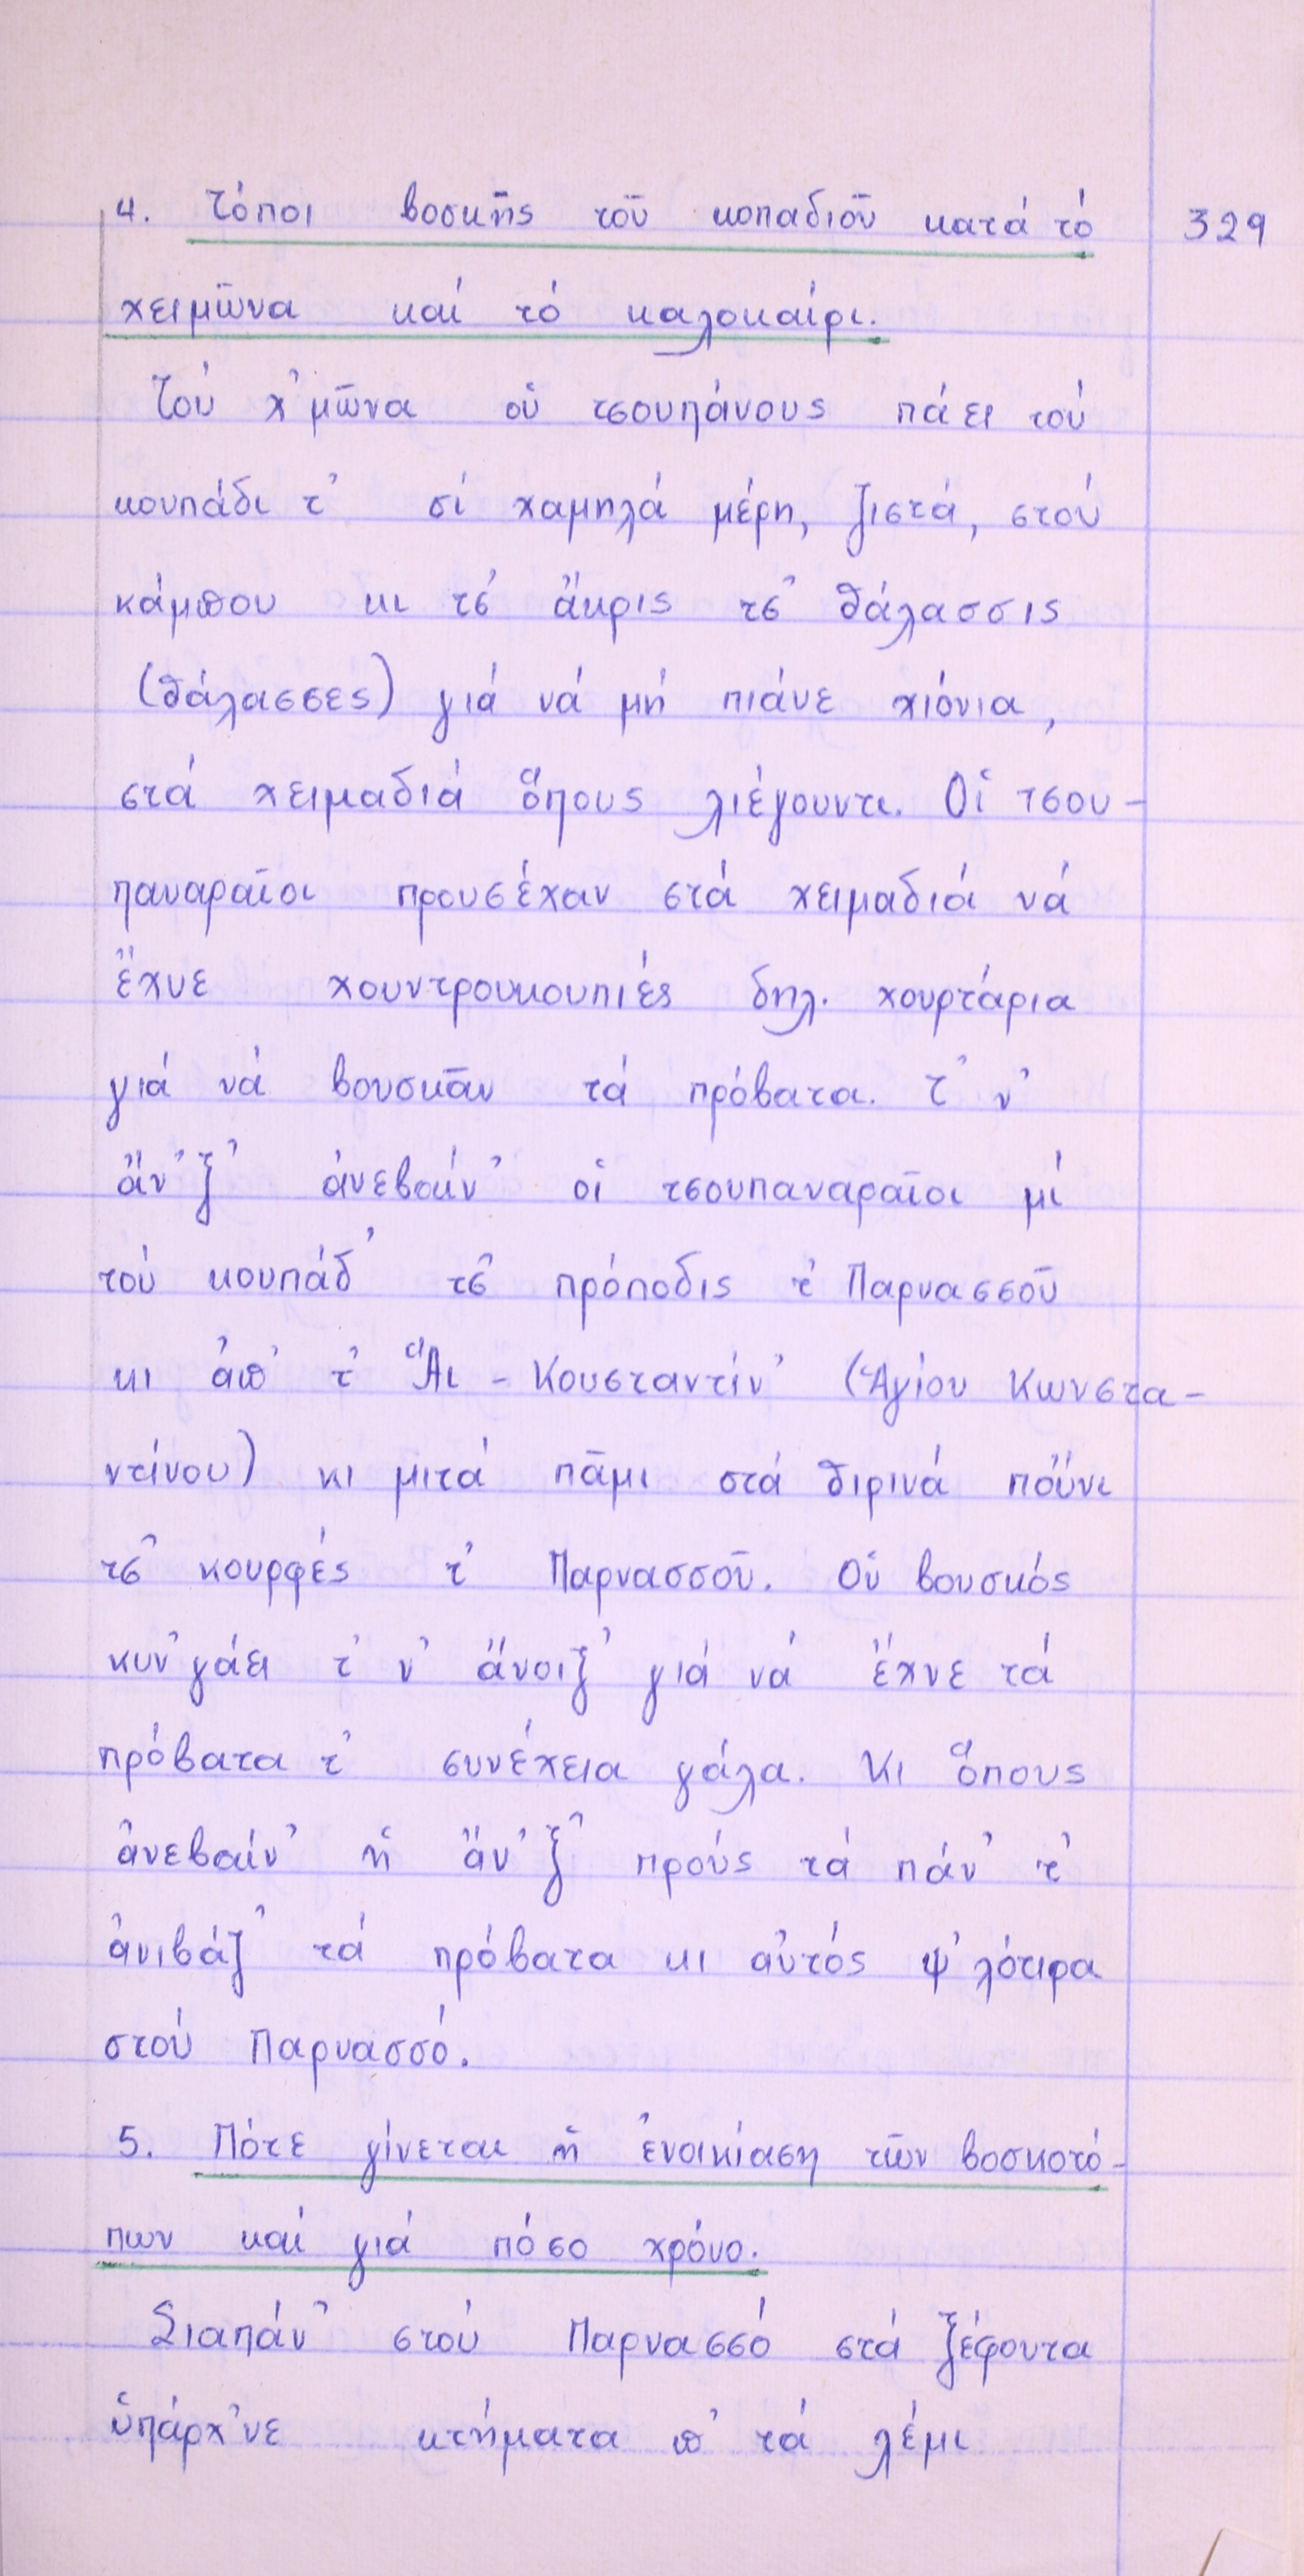 4. Τόποι βοσκῆς τοῦ κοπαδιοῦ κατά τό
329
χειμῶνα καί τό καλοκαίρι.
Τού χ᾿μῶνα οὑ τσουπάνους πάει τού
κουπάδι τ᾿ σί χαμηλά μέρη, ζιστά, στού
κάμπου κι τσ᾿ ἄκρις τσ᾿ θάλασσις
(θάλασσες) γιά νά μή πιάνε χιόνια,
στά χειμαδιά ὅπους λιέγουντι. Οἱ τσου-
παναραῖοι προυσέχαν στά χειμαδιά νά
ἔχνε χουντρουκουπιές δηλ. χουρτάρια
γιά νά βουσκᾶν τά πρόβατα. Τ᾿ ν᾿
ἄν᾿ξ᾿ ἀνεβαίν᾿ οἱ τσουπαναραῖοι μί
τού κουπάδ᾿ τσ᾿ πρόποδις τ᾿ Παρνασσοῦ
κι ἀπ᾿ τ᾿ Ἅι - Κουσταντίν᾿ (Ἁγίου Κωνστα-
ντίνου) κι μιτά πᾶμι στά θιρινά ποὔνι
τσ᾿ κουρφές τ᾿ Παρνασσοῦ. Οὑ βουσκός
κυν᾿γάει τ᾿ ν᾿ ἄνοιξ᾿ γιά νά ἔχνε τά
πρόβατα τ᾿ συνέχεια γάλα. Κι ὅπους
ἀνεβαίν᾿ ἡ ἄν᾿ξ᾿ πρoύς τά πάν᾿ τ᾿
ἀνιβάζ᾿ τά πρόβατα κι αὐτός ψ᾿λότιρα
στού Παρνασσό.
5. Πότε γίνεται ἡ ἐνοικίαση τῶν βοσκοτό-
πων καί γιά πόσο χρόνο.
Σιαπάν᾿ στού Παρνασσό στά ξέφουτα
ὑπάρχ᾿νε κτήματα π᾿ τά λέμι